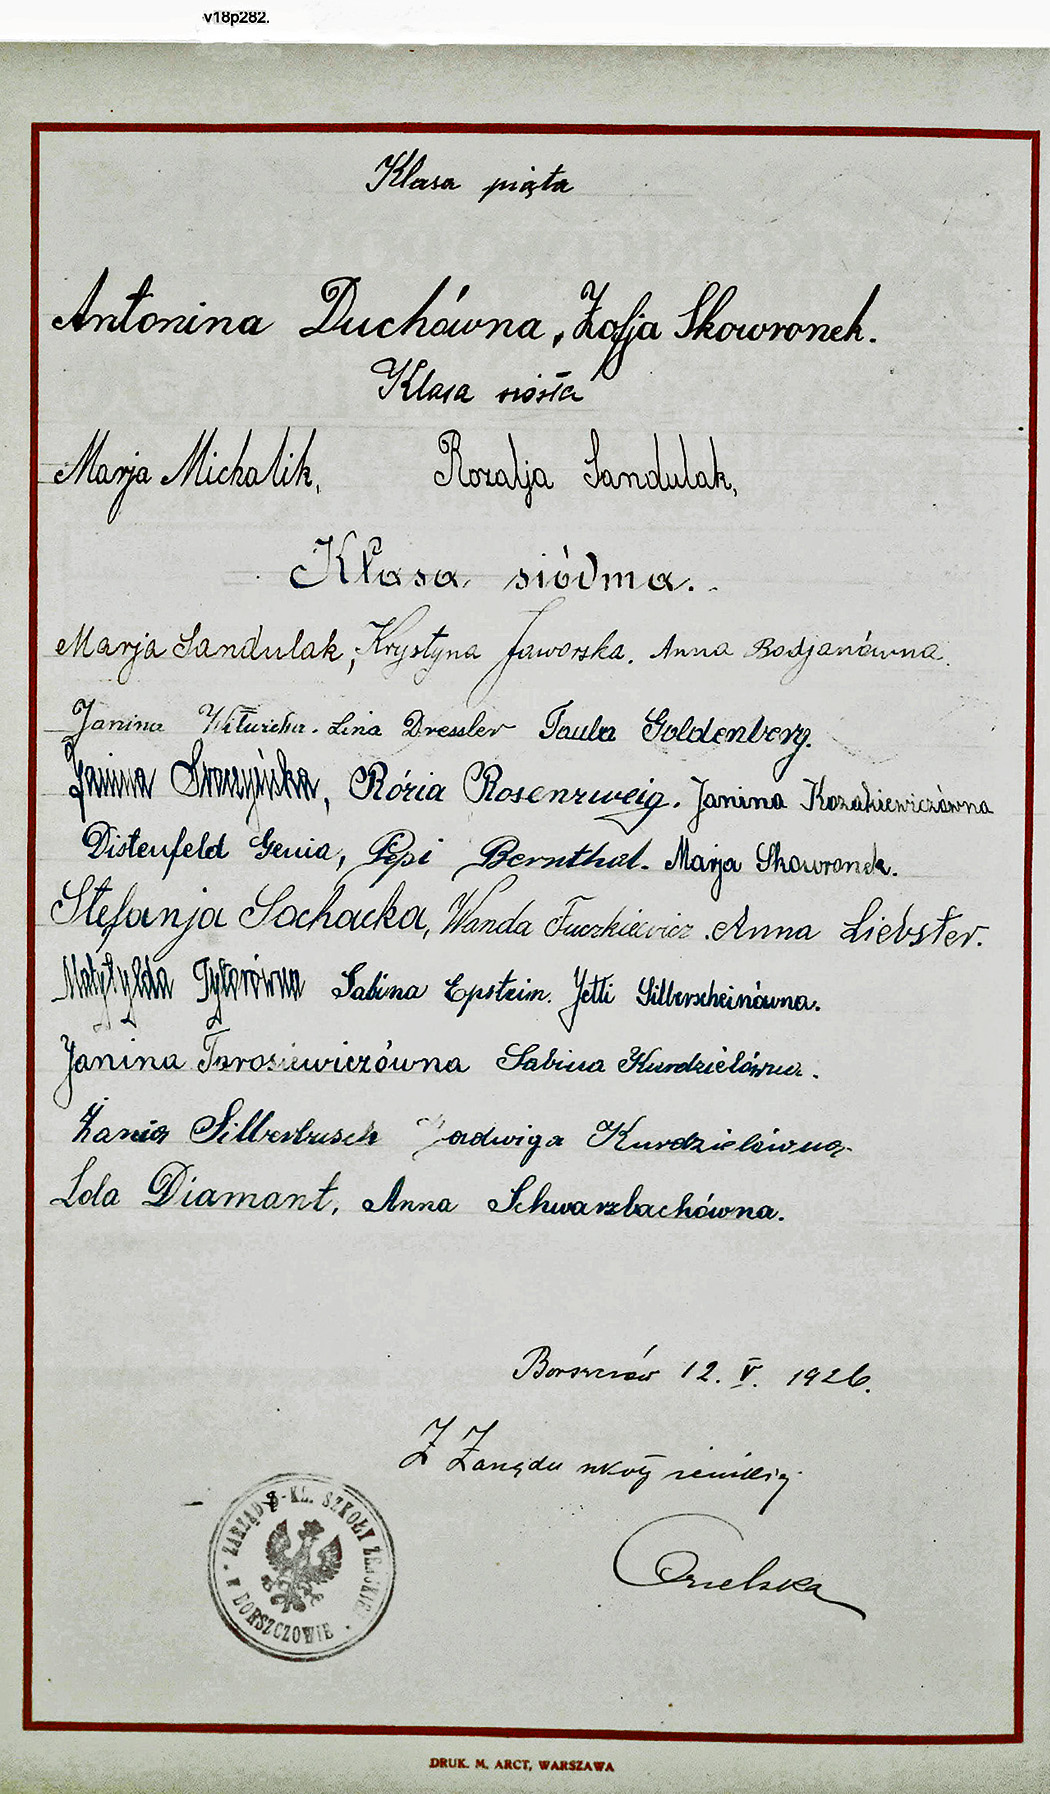 v18p282.
Klasa piąta
Antonina Duchówna, Zofja Skowronek.
Klasa szósta
Marja Michalik, Rozalja Sandulak,
Klasa siódma.
Marja Sandulak, Krystyna Jaworska. Anna Bodjanówna.
Janina Lina Dressler Tauba Goldenberg.
Janina Rózia Rosenzweig. Janina Kozakiewiczówna
Distenfeld Genia, Pepi Bernthal. Marja Skowronek.
Stefanja Sochacka, Wanda Tuczkiewicz. Anna Liebster.
Matylda Tyłorówna Sabina Epstein. Jetti Silberscheinówna.
Janina Tarosiewiczówna Sabina Kurdzielówna.
Żania Silberbusch Jadwiga Kurdzielówna.
Lola Diamant, Anna Schwarzbachówna.
Borszczów 12. V. 1926.
Z Zarządu szkoły żeńskiej
ZARZĄD 8-KL. SZKOŁY ŻEŃSKIEJ
W BORSZCZOWIE
DRUK. M. ARCT, WARSZAWA